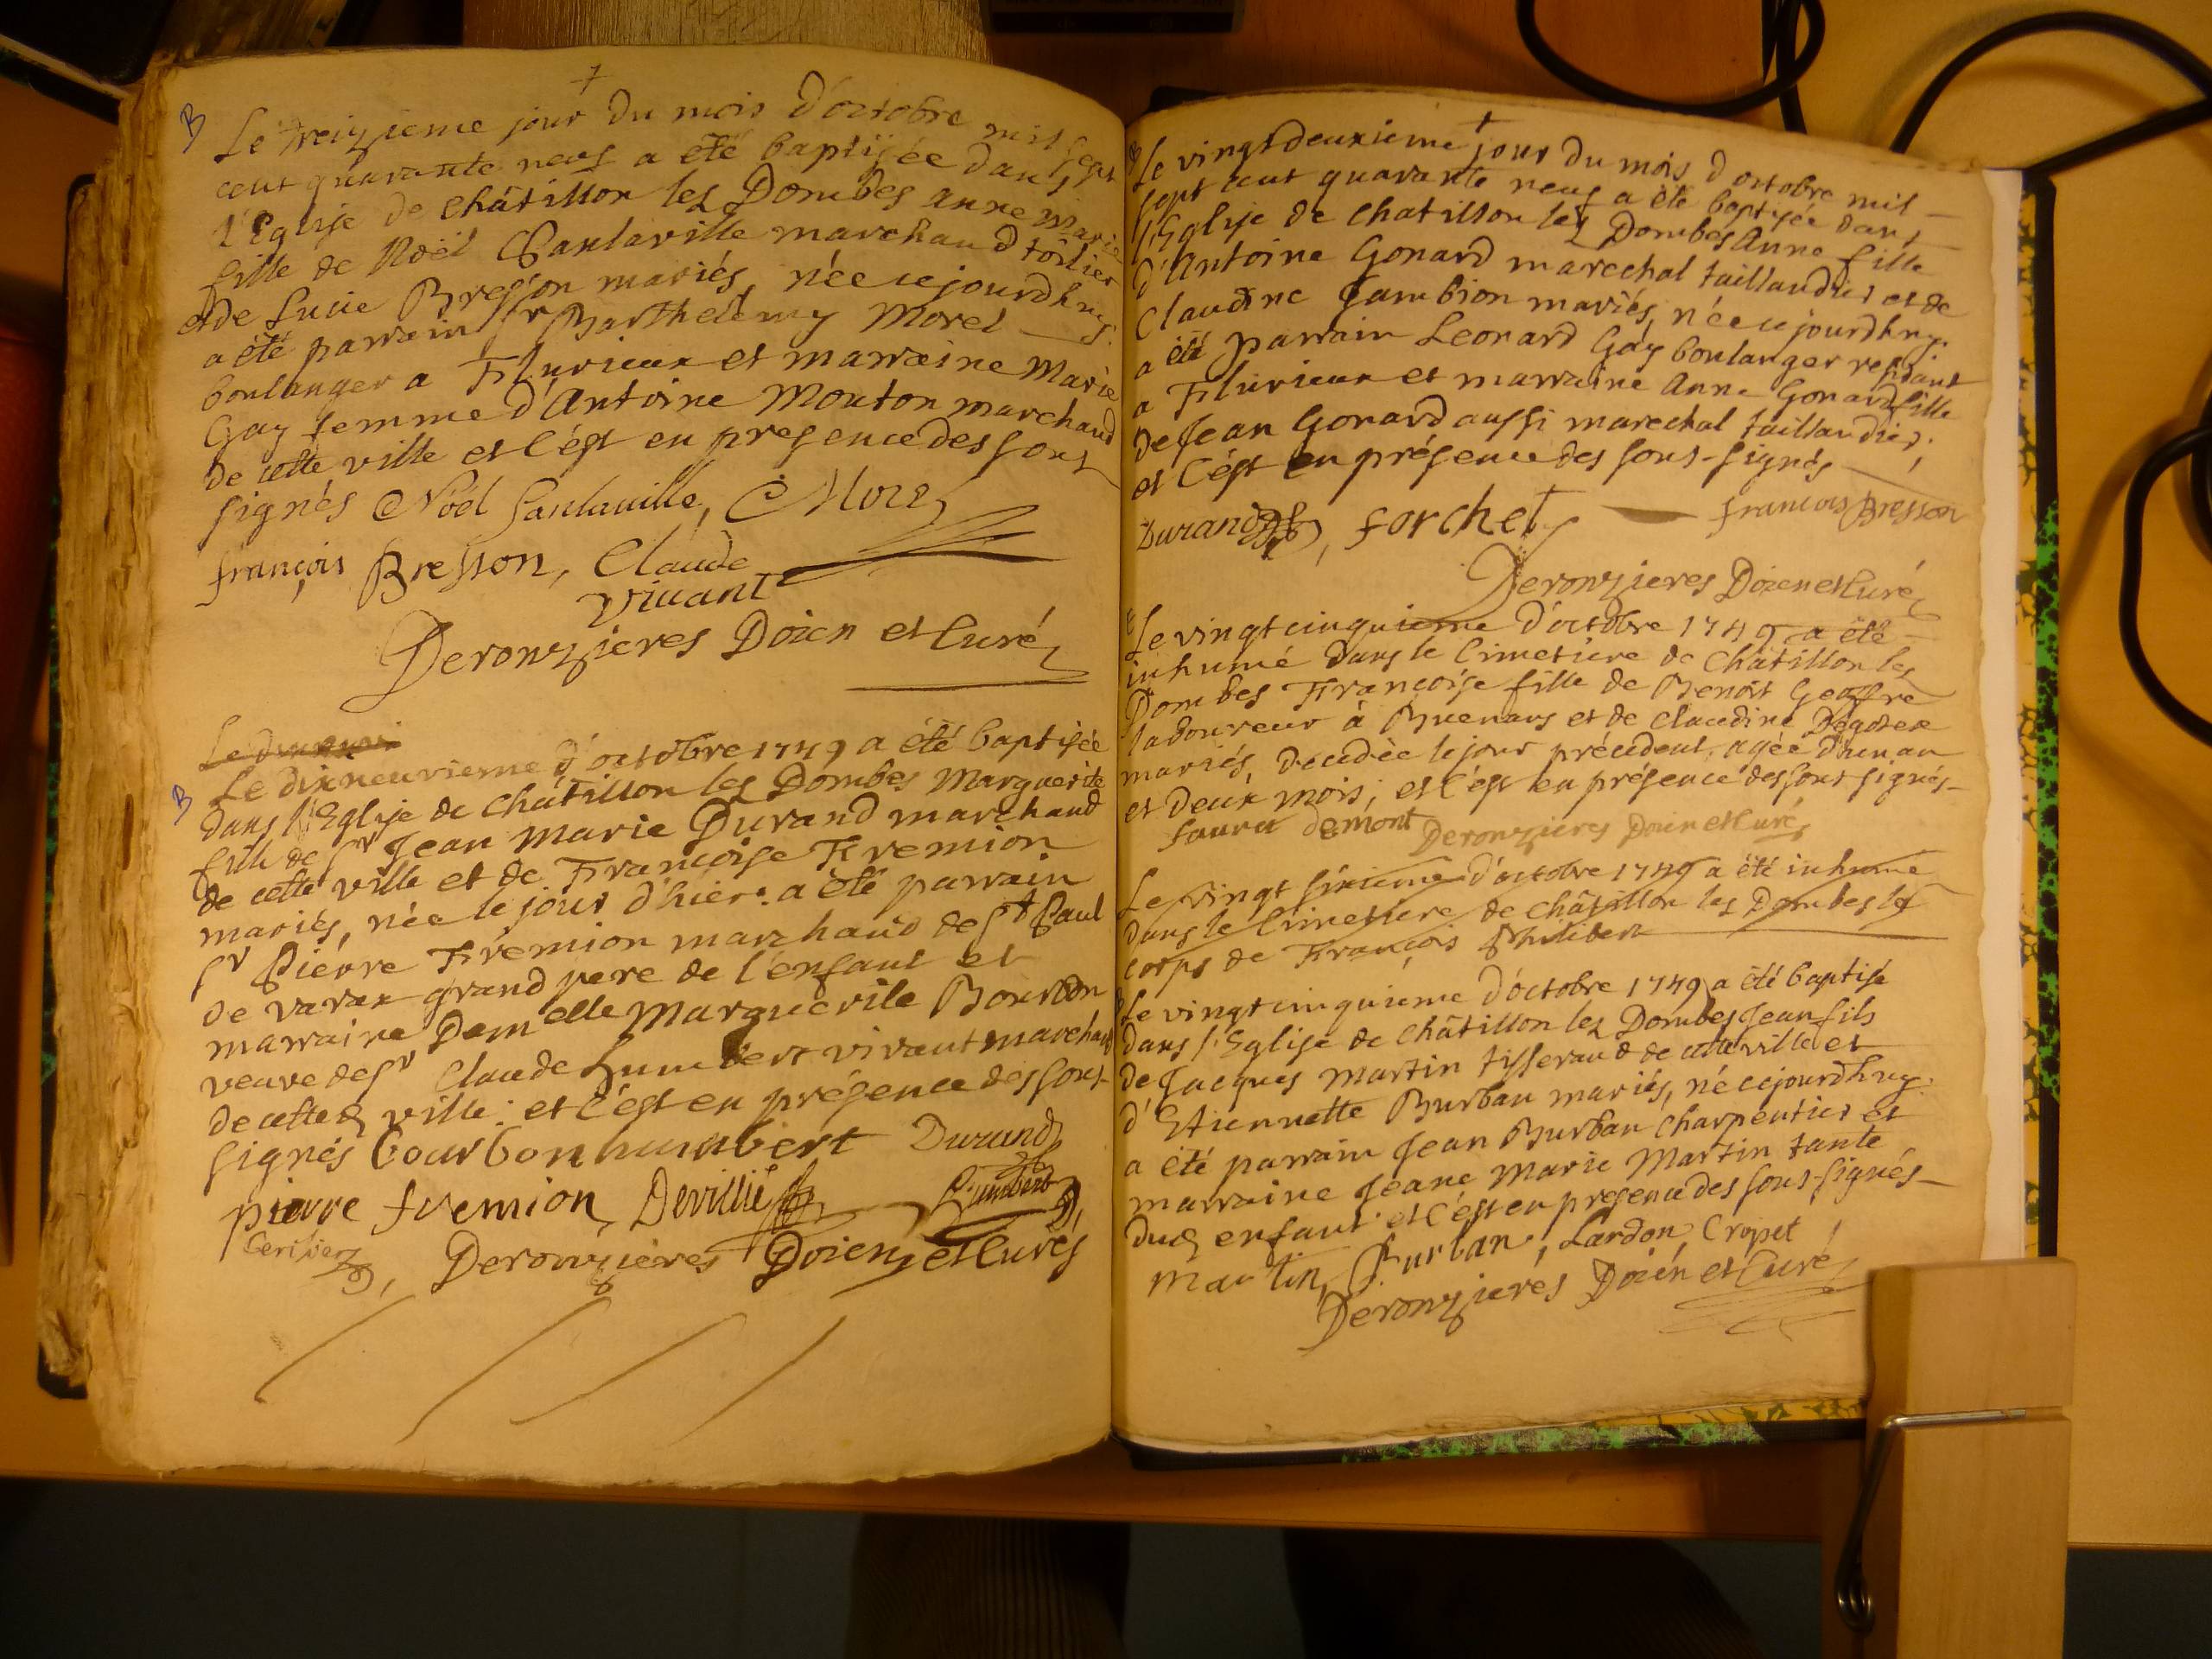 B
Le treizieme jour du mois d'octobre mil sept
cent quarante neuf a été baptisée dans
l'Eglise de châtillon les Dombes anne marie
fille de Noël Saulaville marchand toilier
et de Lucie Bresson mariés, née cejourdhuy.
a été parrain sr Barthelemy Morel
boulanger a Flurieux et marraine Marie
Gay femme d'Antoine Mouton marchand
de cette ville et c'est en presence des sous
signés Noël Saulauille, Morel
françois Bresson, Claude
Viuant
Deronzieres Doien et Curé
Le dixneuvieme d'octobre 1749 a été baptisée
B
dans l'Eglise de châtillon les Dombes Marguerite
fille de sr Jean Marie Durand marchand
de cette ville et de Françoise Fremion
mariés, née le jour d'hier. a été parrain
sr Pierre Fremion marchand de st Paul
de varax grand pere de l'enfant et
marraine Demelle Marguerite Bourbon
veuve de sr Claude humbert vivant marchand
de cette ville. et c'est en présence des sous-
signés bourbon humbert Durand
pierre fremion, Devillie humbert
Deronzieres Doien et Curé
B
Le vingtdeuxieme jour du mois d'octobre mil
sept cent quarante neuf a été baptisée dans
l'Eglise de chatillon les Dombes Anne fille
d'Antoine Gonard marechal taillandier et de
Claudine Jambion mariés, née cejourdhuy.
a été parrain Leonard Gay boulanger residant
a Flurieux et marraine Anne Gonard fille
de Jean Gonard aussi marechal taillandier;
et c'est en présence des sous-signés
Durand, forchet françois Bresson
Deronzieres Doien et Curé
Le vingtcinquieme d'octobre 1749 a été
inhumé dans le Cimetiere de Châtillon les
Dombes Françoise fille de Benoit Geoffre
laboureur à Buenans et de Claudine
mariés, decedée le jour précédent, agée d'un an
et deux mois; et c'est en présence des sous-signés-
demont Deronzieres Doien et Curé
Le vingt sixieme d'octobre 1749 a été inhumé
dans le Cimetiere de Châtillon les Dombes le
corps de François Philibert
Le vingtcinquieme d'octobre 1749 a été baptisé
dans l'Eglise de Châtillon les Dombes Jean fils
de Jacques Martin tisserand de cette ville et
d'Etiennette Burban mariés, né cejourdhuy.
a été parrain Jean Burban Charpentier et
marraine Jeane Marie Martin tante
dud. enfant et c'est en presence des sous-signés-
Martin, Burban, Lardon, Cropet
Deronzieres Doien et Curé